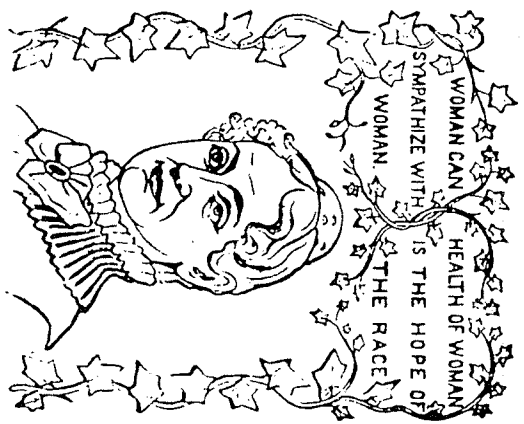 WOMAN CAN
SYMPATHIZE WITH
WOMAN.
HEALTH OF WOMAN
IS THE HOPE OF
THE RACE